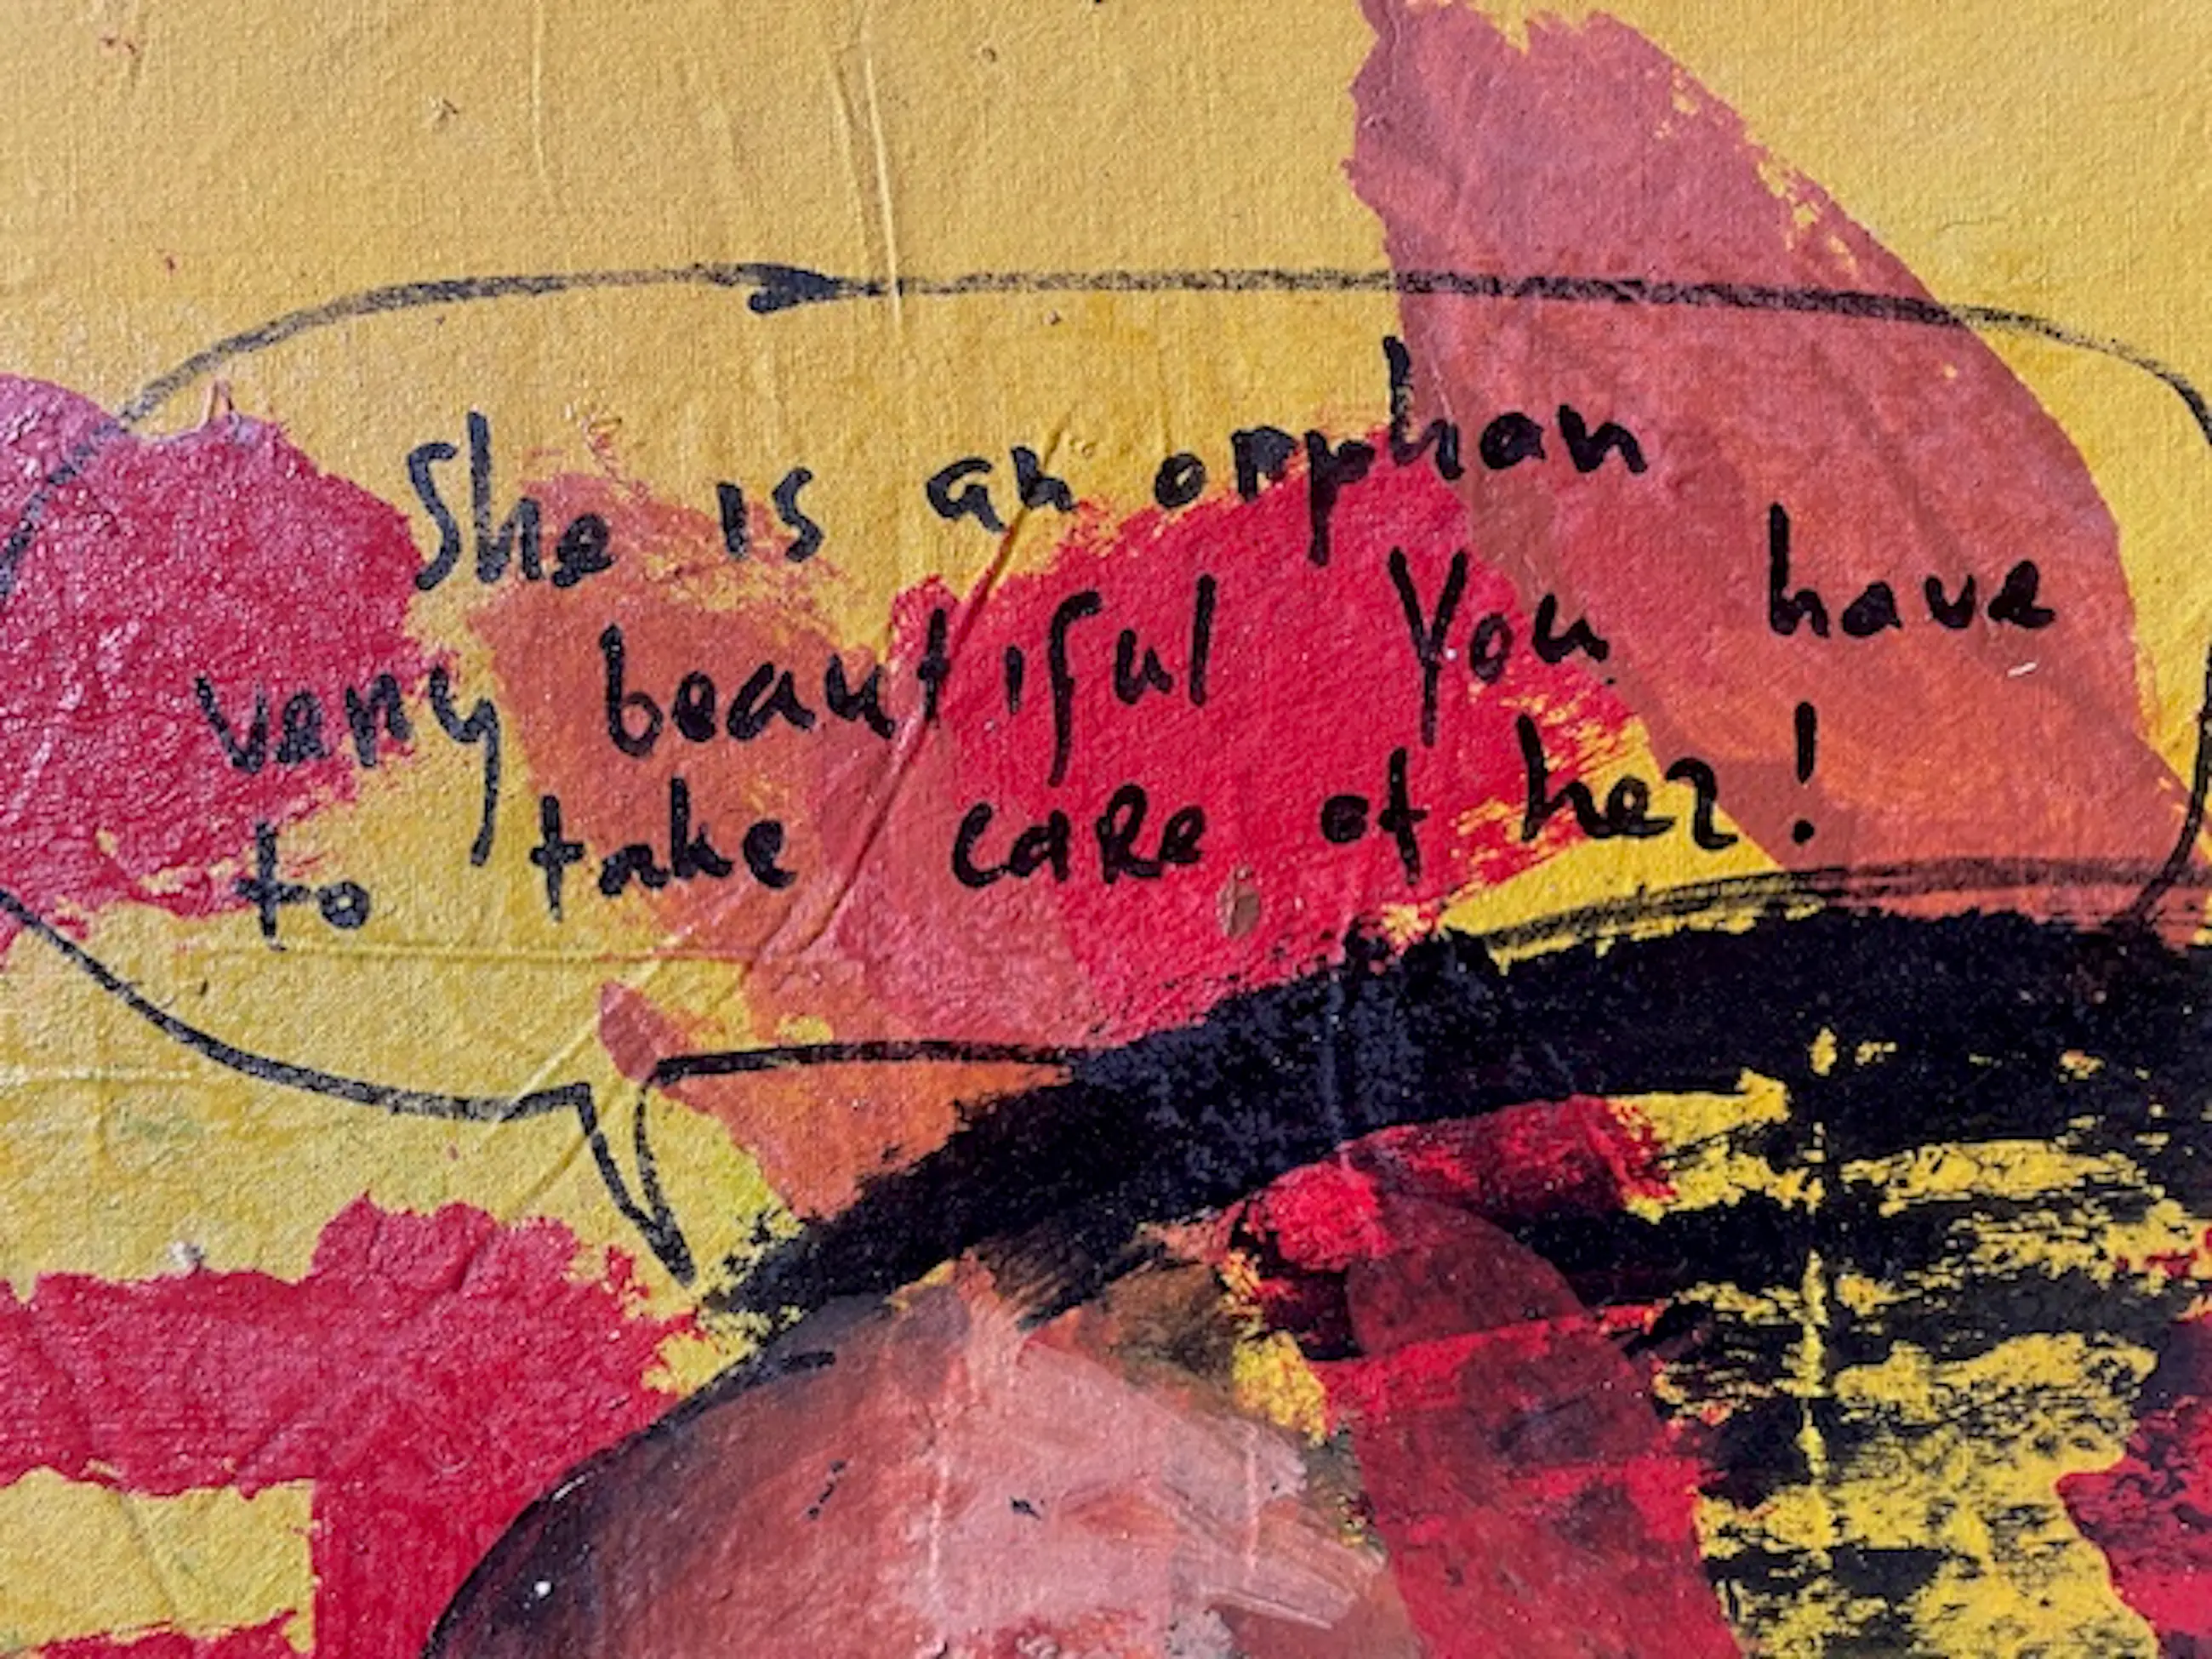 She is an orphan
very beautiful You have
to take care of her!